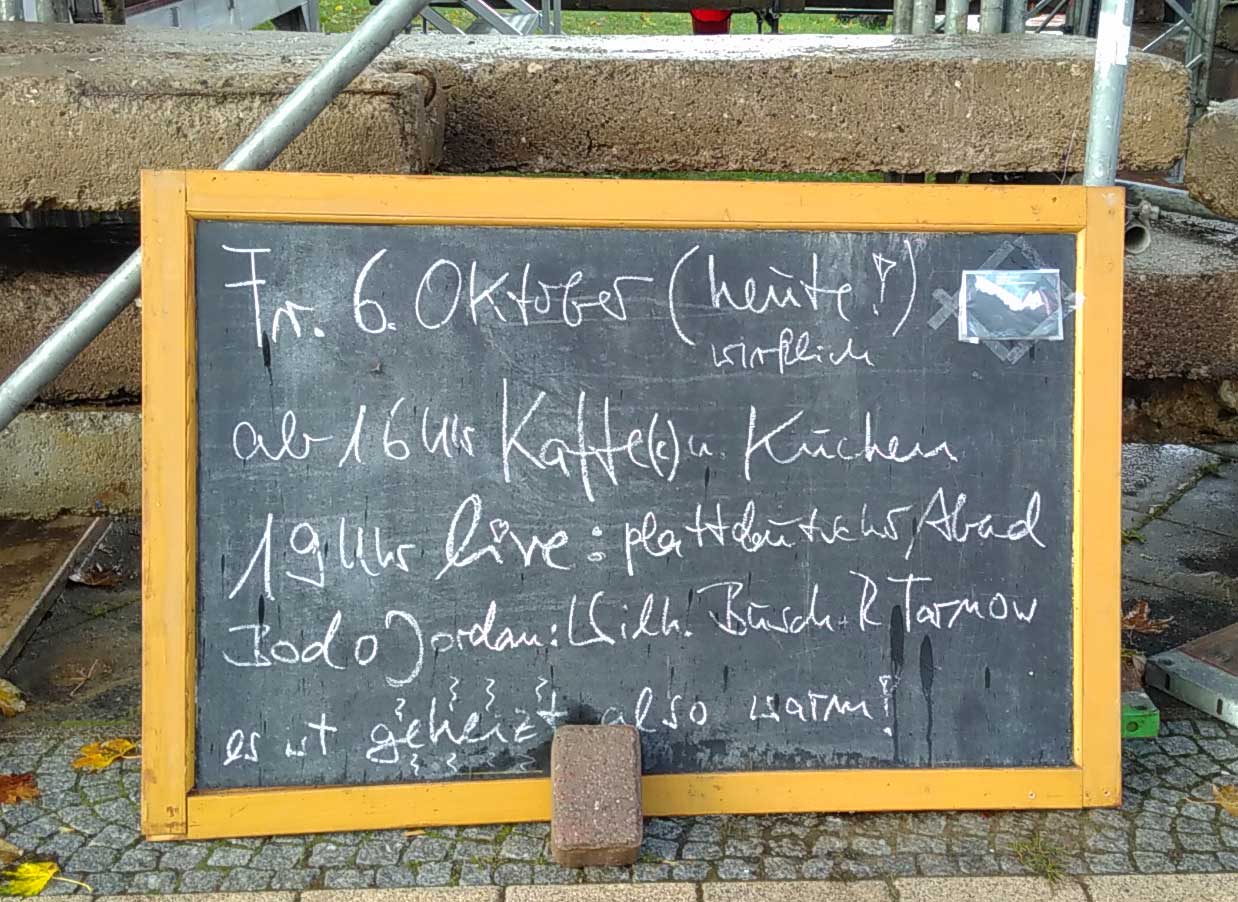 Fr. 6. Oktober (heute!)
wirklich
ab 16 Uhr Kaffe(e) u. Kuchen
19 Uhr live: plattdeutscher Abend
Bodo Jordan: Wilh. Busch + R Tarnow
es ist geheizt also warm!